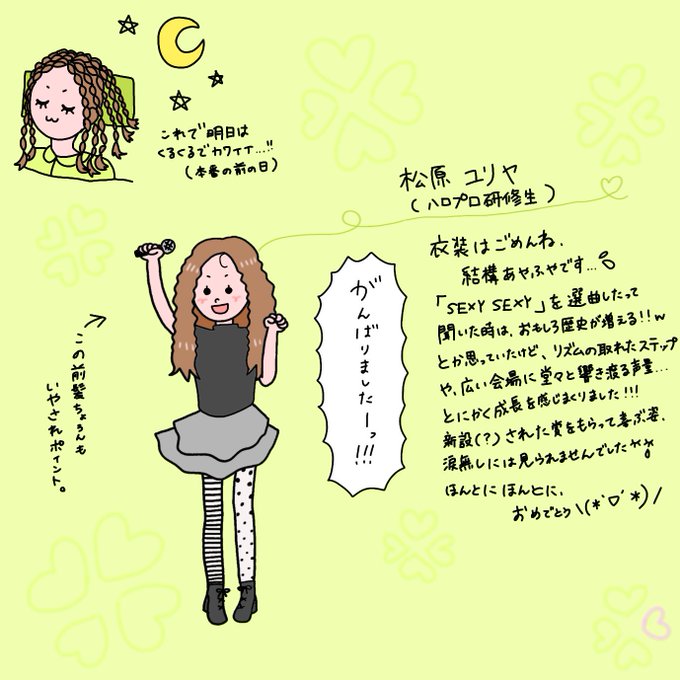 これで明日は
くるくるでカワイイ...!!
(本番の前の日)
松原 ユリヤ
(ハロプロ研修生)
衣装はごめんね、
結構あやふやです...
「SEXY SEXY」を選曲したって
聞いた時は、おもしろ歴史が増える!!w
とか思っていたけど、リズムの取れたステップ
や、広い会場に堂々と響き渡る声量...
とにかく成長を感じまくりました!!!
新設(?)された賞をもらって喜ぶ姿、
涙無しには見られませんでした
ほんとにほんとに、
おめでとう\(*ˊᗜˋ*)/
がんばりましたーっ!!!
この前髪ちょろんも
いやされポイント。